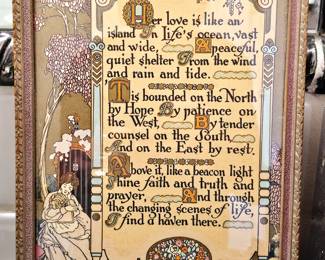 Her love is like an
island In life's ocean, vast
and wide, A peaceful,
quiet shelter From the wind
and rain and tide.
'Tis bounded on the North
by Hope By patience on
the West, By tender
counsel on the South
And on the East by rest.
Above it, like a beacon light
Shine faith and truth and
prayer, And through
the changing scenes of life,
I find a haven there.